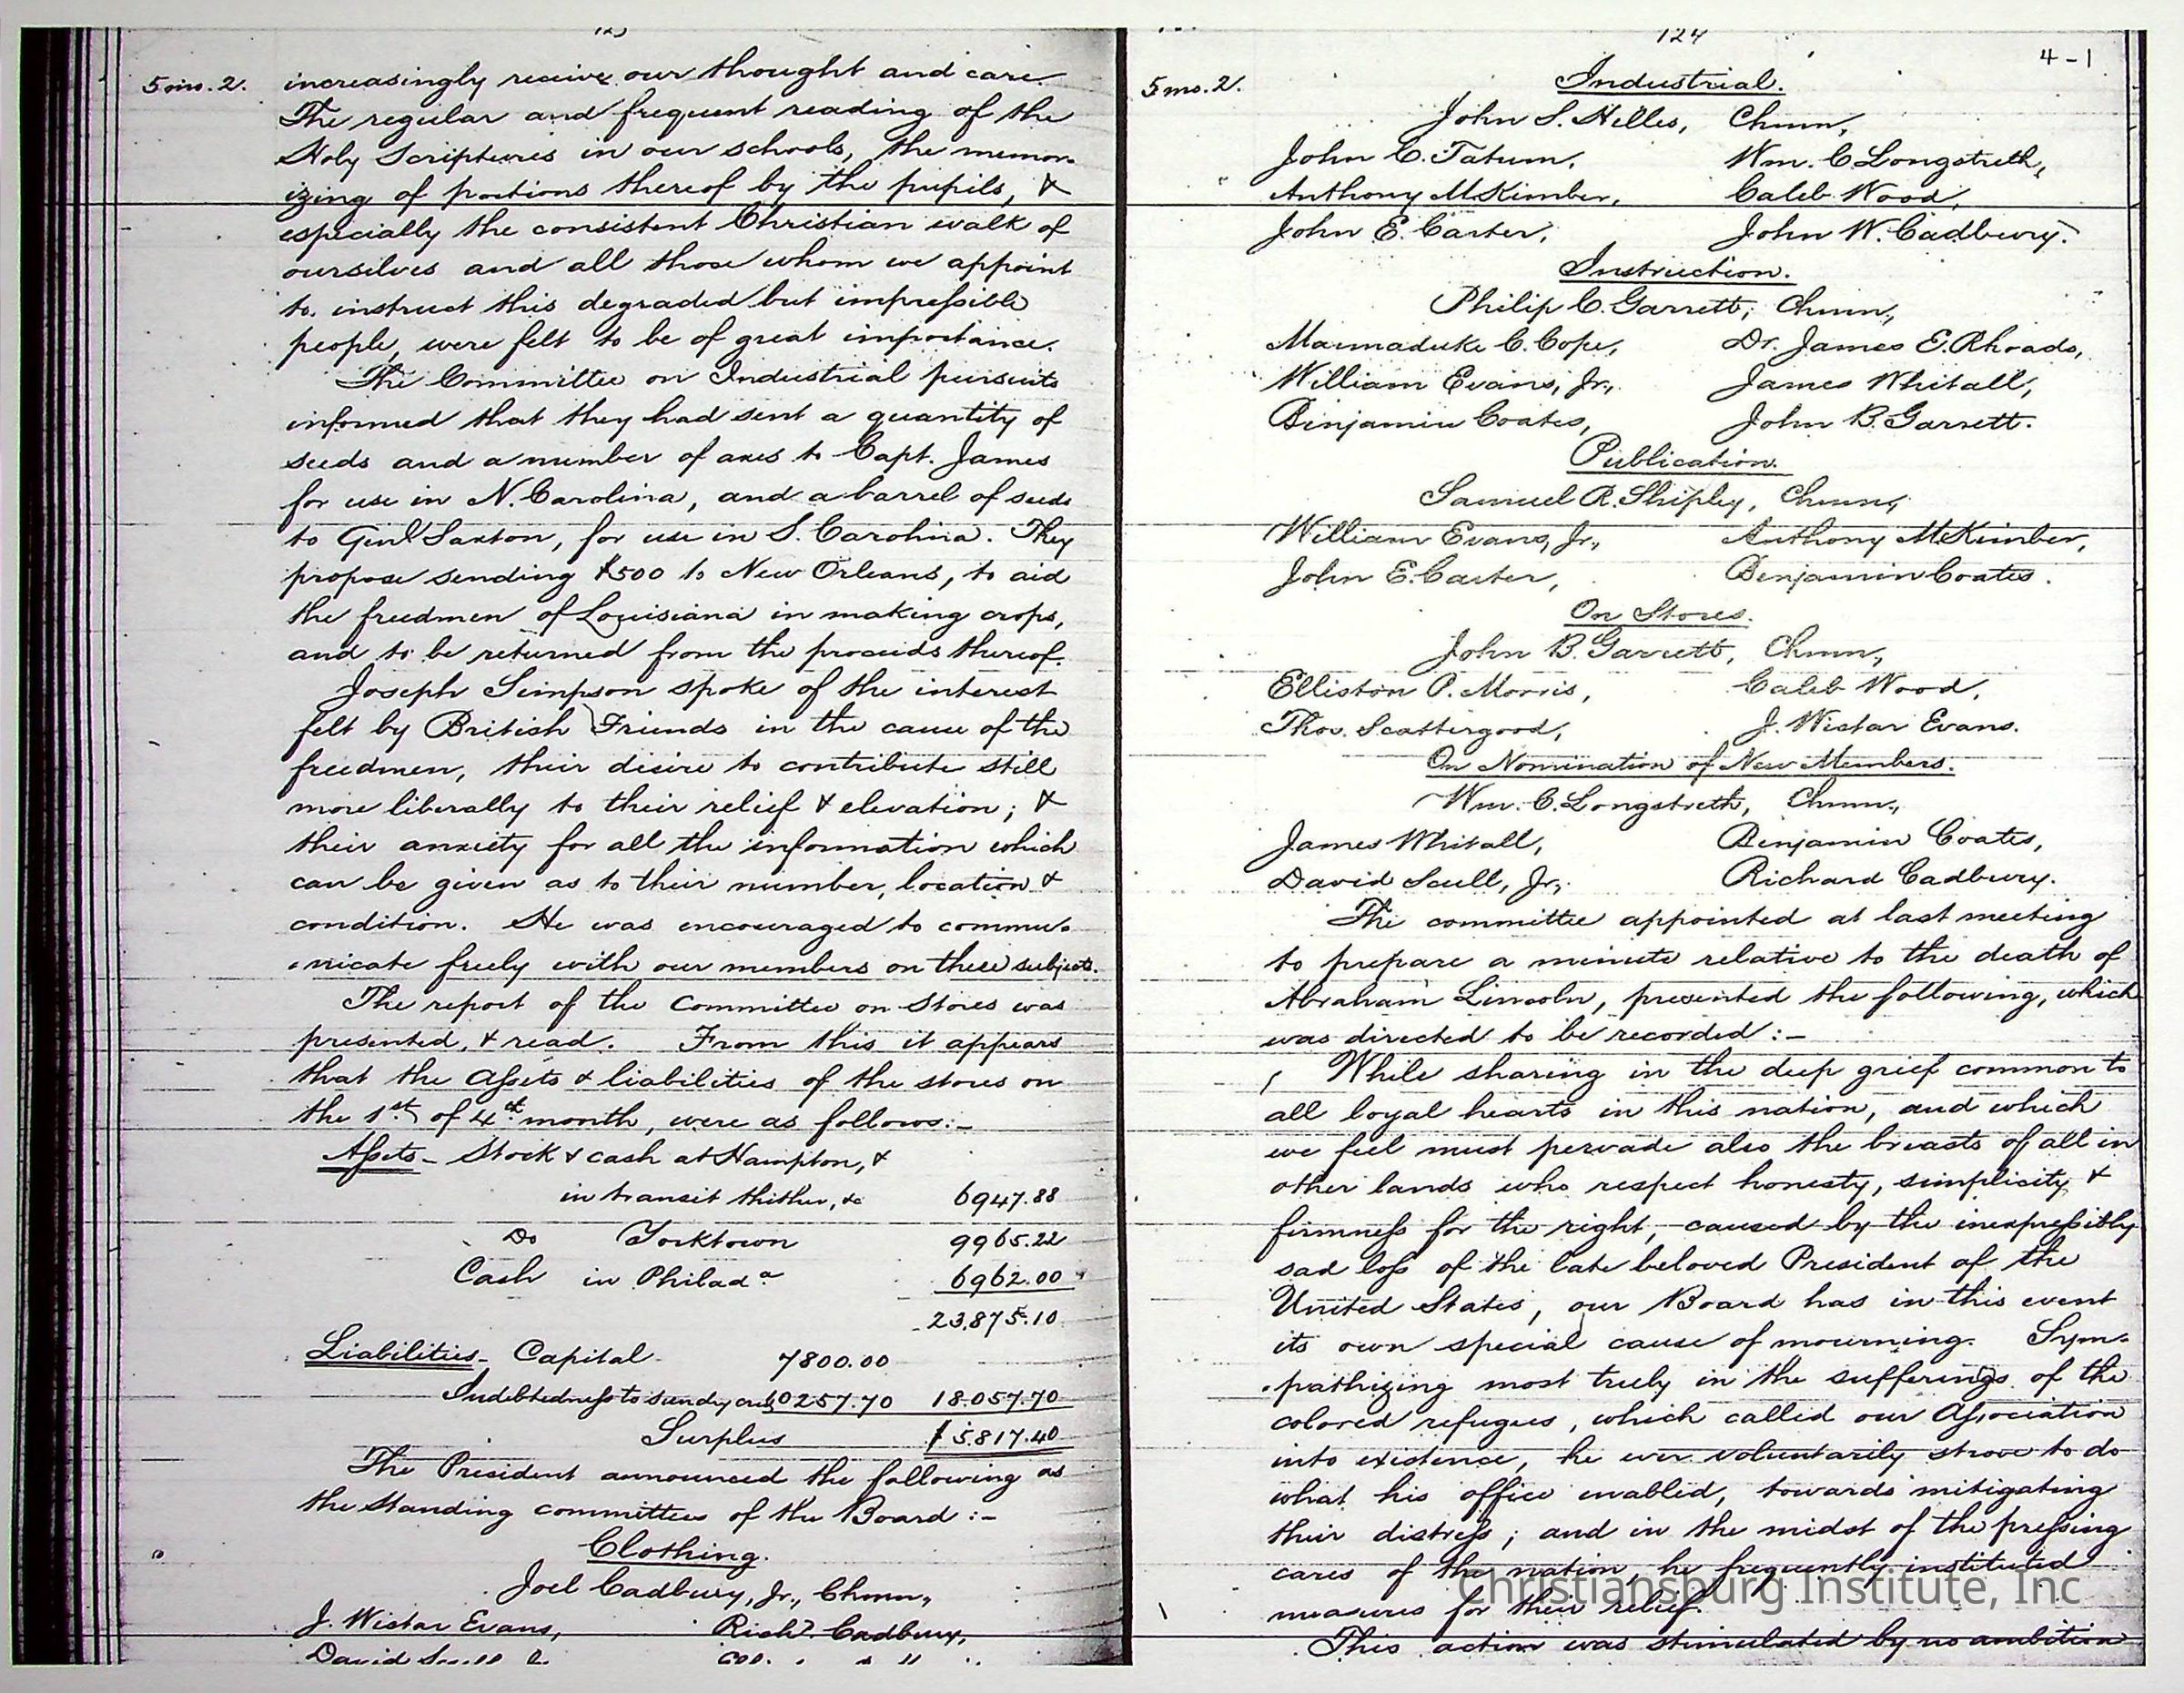 5 mo. 2. increasingly receive our thought and care.
The regular and frequent reading of the
Holy Scriptures in our schools, the memor-
izing of portions thereof by the pupils, &
especially the consistent Christian walk of
ourselves and all those whom we appoint
to instruct this degraded but impressible
people, were felt to be of great importance.
The Committee on Industrial pursuits
informed that they had sent a quantity of
seeds and a number of axes to Capt. James
for use in N. Carolina, and a barrel of seeds
to Genl Saxton, for use in S. Carolina. They
propose sending $500 to New Orleans, to aid
the freedmen of Louisiana in making crops,
and to be returned from the proceeds thereof.
Joseph Simpson spoke of the interest
felt by British Friends in the cause of the
freedmen, their desire to contribute still
more liberally to their relief & elevation; &
their anxiety for all the information which
can be given as to their number, location &
condition. He was encouraged to commu-
nicate freely with our members on these subjects.
The report of the Committee on Stores was
presented, & read. From this it appears
that the Assets & liabilities of the stores on
the 1st of 4th month, were as follows:-
Assets - Stock & cash at Hampton, &
in transit thither, &c 6947.88
Do Yorktown 9965.22
Cash in Philada 6962.00
23,875.10
Liabilities - Capital 7800.00
Indebtedness to sundry 10257.70 18.057.70
Surplus $5.817.40
The President announced the following as
the Standing committees of the Board :-
Clothing.
Joel Cadbury, Jr., Chmn,
J. Wistar Evans, Richd. Cadbury,
David
124
4-1
5 mo. 2. Industrial.
John S. Hilles, Chmn,
John C. Tatum, Wm. C Longstreth,
Anthony M Kimber, Caleb Wood,
John E. Carter, John W. Cadbury.
Instruction.
Philip C. Garrett, Chmn,
Marmaduke C. Cope, Dr. James E. Rhoads,
William Evans, Jr., James Whitall,
Benjamin Coates, John B. Garrett.
Publication.
Samuel R. Shipley, Chmn,
William Evans, Jr., Anthony M Kimber,
John E. Carter, Benjamin Coates.
On Stores.
John B. Garrett, Chmn,
Elliston P. Morris, Caleb Wood,
Thos. Scattergood, J. Wistar Evans.
On Nomination of New Members.
Wm. C. Longstreth, Chmn,
James Whitall, Benjamin Coates,
David Scull, Jr, Richard Cadbury.
The committee appointed at last meeting
to prepare a minute relative to the death of
Abraham Lincoln, presented the following, which
was directed to be recorded :-
While sharing in the deep grief common to
all loyal hearts in this nation, and which
we feel must pervade also the breasts of all in
other lands who respect honesty, simplicity &
firmness for the right, caused by the inexpressibly
sad loss of the late beloved President of the
United States, our Board has in this event
its own special cause of mourning. Sym-
pathizing most truly in the sufferings of the
colored refugees, which called our Association
into existence, he ever voluntarily strove to do
what his office enabled, towards mitigating
their distress; and in the midst of the pressing
cares of the nation, he frequently instituted
measures for their relief.
This action was stimulated by no ambition
Christiansburg Institute, Inc